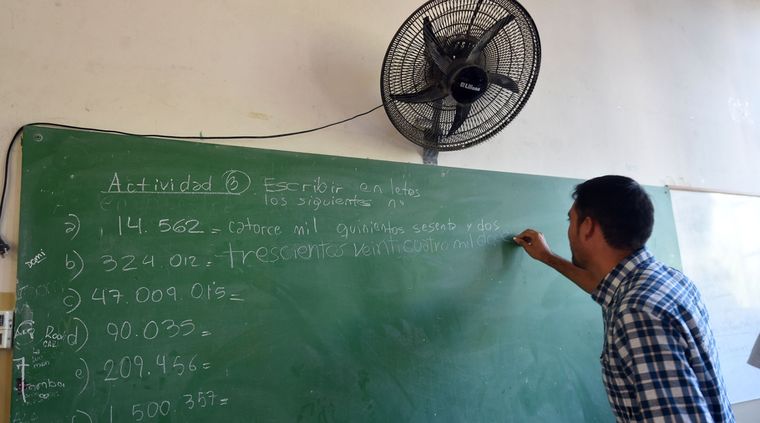 Liliana
Actividad 3 Escribir en letas
los siguientes nº
a) 14.562 = catorce mil quinientos sesenta y dos
b) 324.012 = trescientos veinticuatro mil
c) 47.009.015 =
d) 90.035 =
e) 209.456 =
1 500.357 =
Domi